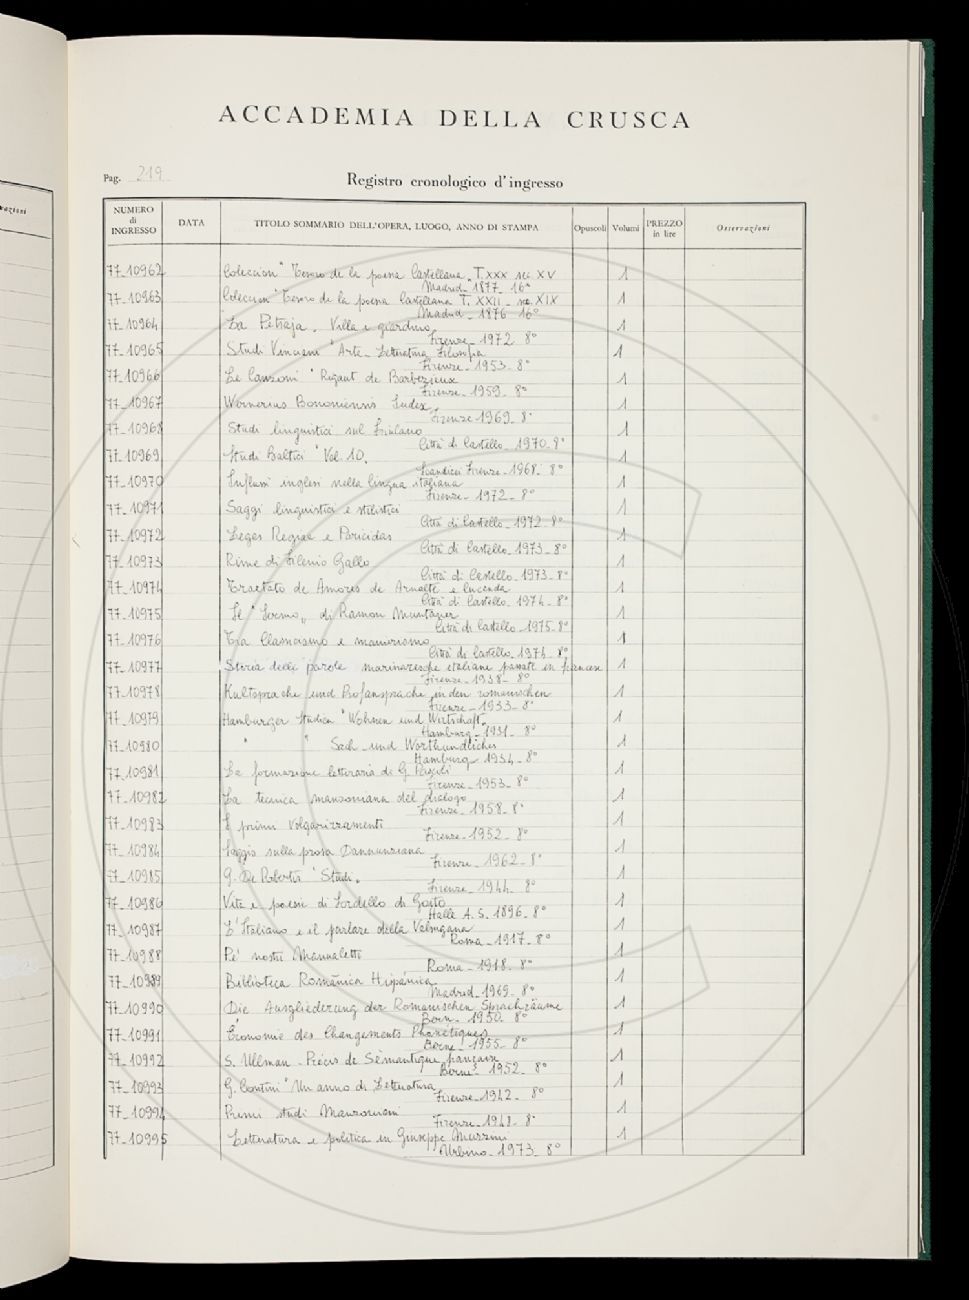 ACCADEMIA DELLA CRUSCA
Pag. 219
Registro cronologico d'ingresso
NUMERO di INGRESSO DATA TITOLO SOMMARIO DELL'OPERA, LUOGO, ANNO DI STAMPA Opuscoli Volumi PREZZO in lire Osservazioni
77_10962 Coleccion "Tesoro de la poesia Castellana T. XXX sec. XV 1
Madrid_1877_16°
77_10963 Coleccion "Tesoro de la poesia Castellana T. XXII_sec. XIX 1
Madrid_1876 16°
77_10964 La Petraja. Villa e giardino 1
Firenze_1972 8°
77_10965 Studi Vinciani "Arte_Letteratura Filosofia 1
Firenze_1953_8°
77_10966 Le Canzoni "Rigaut de Barbezieux 1
Firenze_1959_8°
77_10967 Wernerius Bononiensis Index 1
Firenze 1969_8°
77_10968 Studi linguistici sul Friulano 1
Città di Castello_1970_8°
77_10969 Studi Baltici "Vol. 10. 1
Firenze_1968_8°
77_10970 Influssi inglesi nella lingua italiana 1
Firenze_1972_8°
77_10971 Saggi linguistici e stilistici 1
Città di Castello_1972_8°
77_10972 Leges Regiae e Paricidas 1
Città di Castello_1973_8°
77_10973 Rime di Filenio Gallo 1
Città di Castello_1973_8°
77_10974 Tractato de Amores de Arnalte e Lucenda 1
Città di Castello_1974_8°
77_10975 Il "Sermo" di Ramon Muntaner 1
Città di Castello_1975_8°
77_10976 Tra Classicismo e manierismo 1
Città di Castello_1974_8°
77_10977 Storia delle parole marinaresche italiane passate in francese 1
Firenze_1938_8°
77_10978 Kultsprache und Profansprache in den romanischen 1
Firenze_1933_8°
77_10979 Hamburger Studien "Wohnen und Wirtschaft 1
Hamburg_1931_8°
77_10980 " " Sach_und Wortkundliches 1
Hamburg 1934_8°
77_10981 La formazione letteraria di G. Pascoli 1
Firenze_1953_8°
77_10982 La tecnica manzoniana del dialogo 1
Firenze_1958_8°
77_10983 I primi Volgarizzamenti 1
Firenze_1952_8°
77_10984 Saggio sulla prosa Dannunziana 1
Firenze_1962_8°
77_10985 G. De Robertis "Studi. 1
Firenze_1944_8°
77_10986 Vita e poesie di Sordello di Goito 1
Halle A. S. 1896_8°
77_10987 L'Italiano e il parlare della Valsugana 1
Roma_1917_8°
77_10988 Pe' nostri Manualetti 1
Roma_1918_8°
77_10989 Biblioteca Románica Hispánica 1
Madrid_1969_8°
77_10990 Die Ausgliederung der Romanischen Sprachräume 1
Bern_1950_8°
77_10991 Économie des Changements Phonétiques 1
Berne_1955_8°
77_10992 S. Ullman_Précis de Sémantique française 1
Berne_1952_8°
77_10993 G. Contini "Un anno di Letteratura 1
Firenze_1942_8°
77_10994 Primi studi Manzoniani 1
Firenze_1948_8°
77_10995 Letteratura e politica in Giuseppe Mazzini 1
Urbino_1973_8°